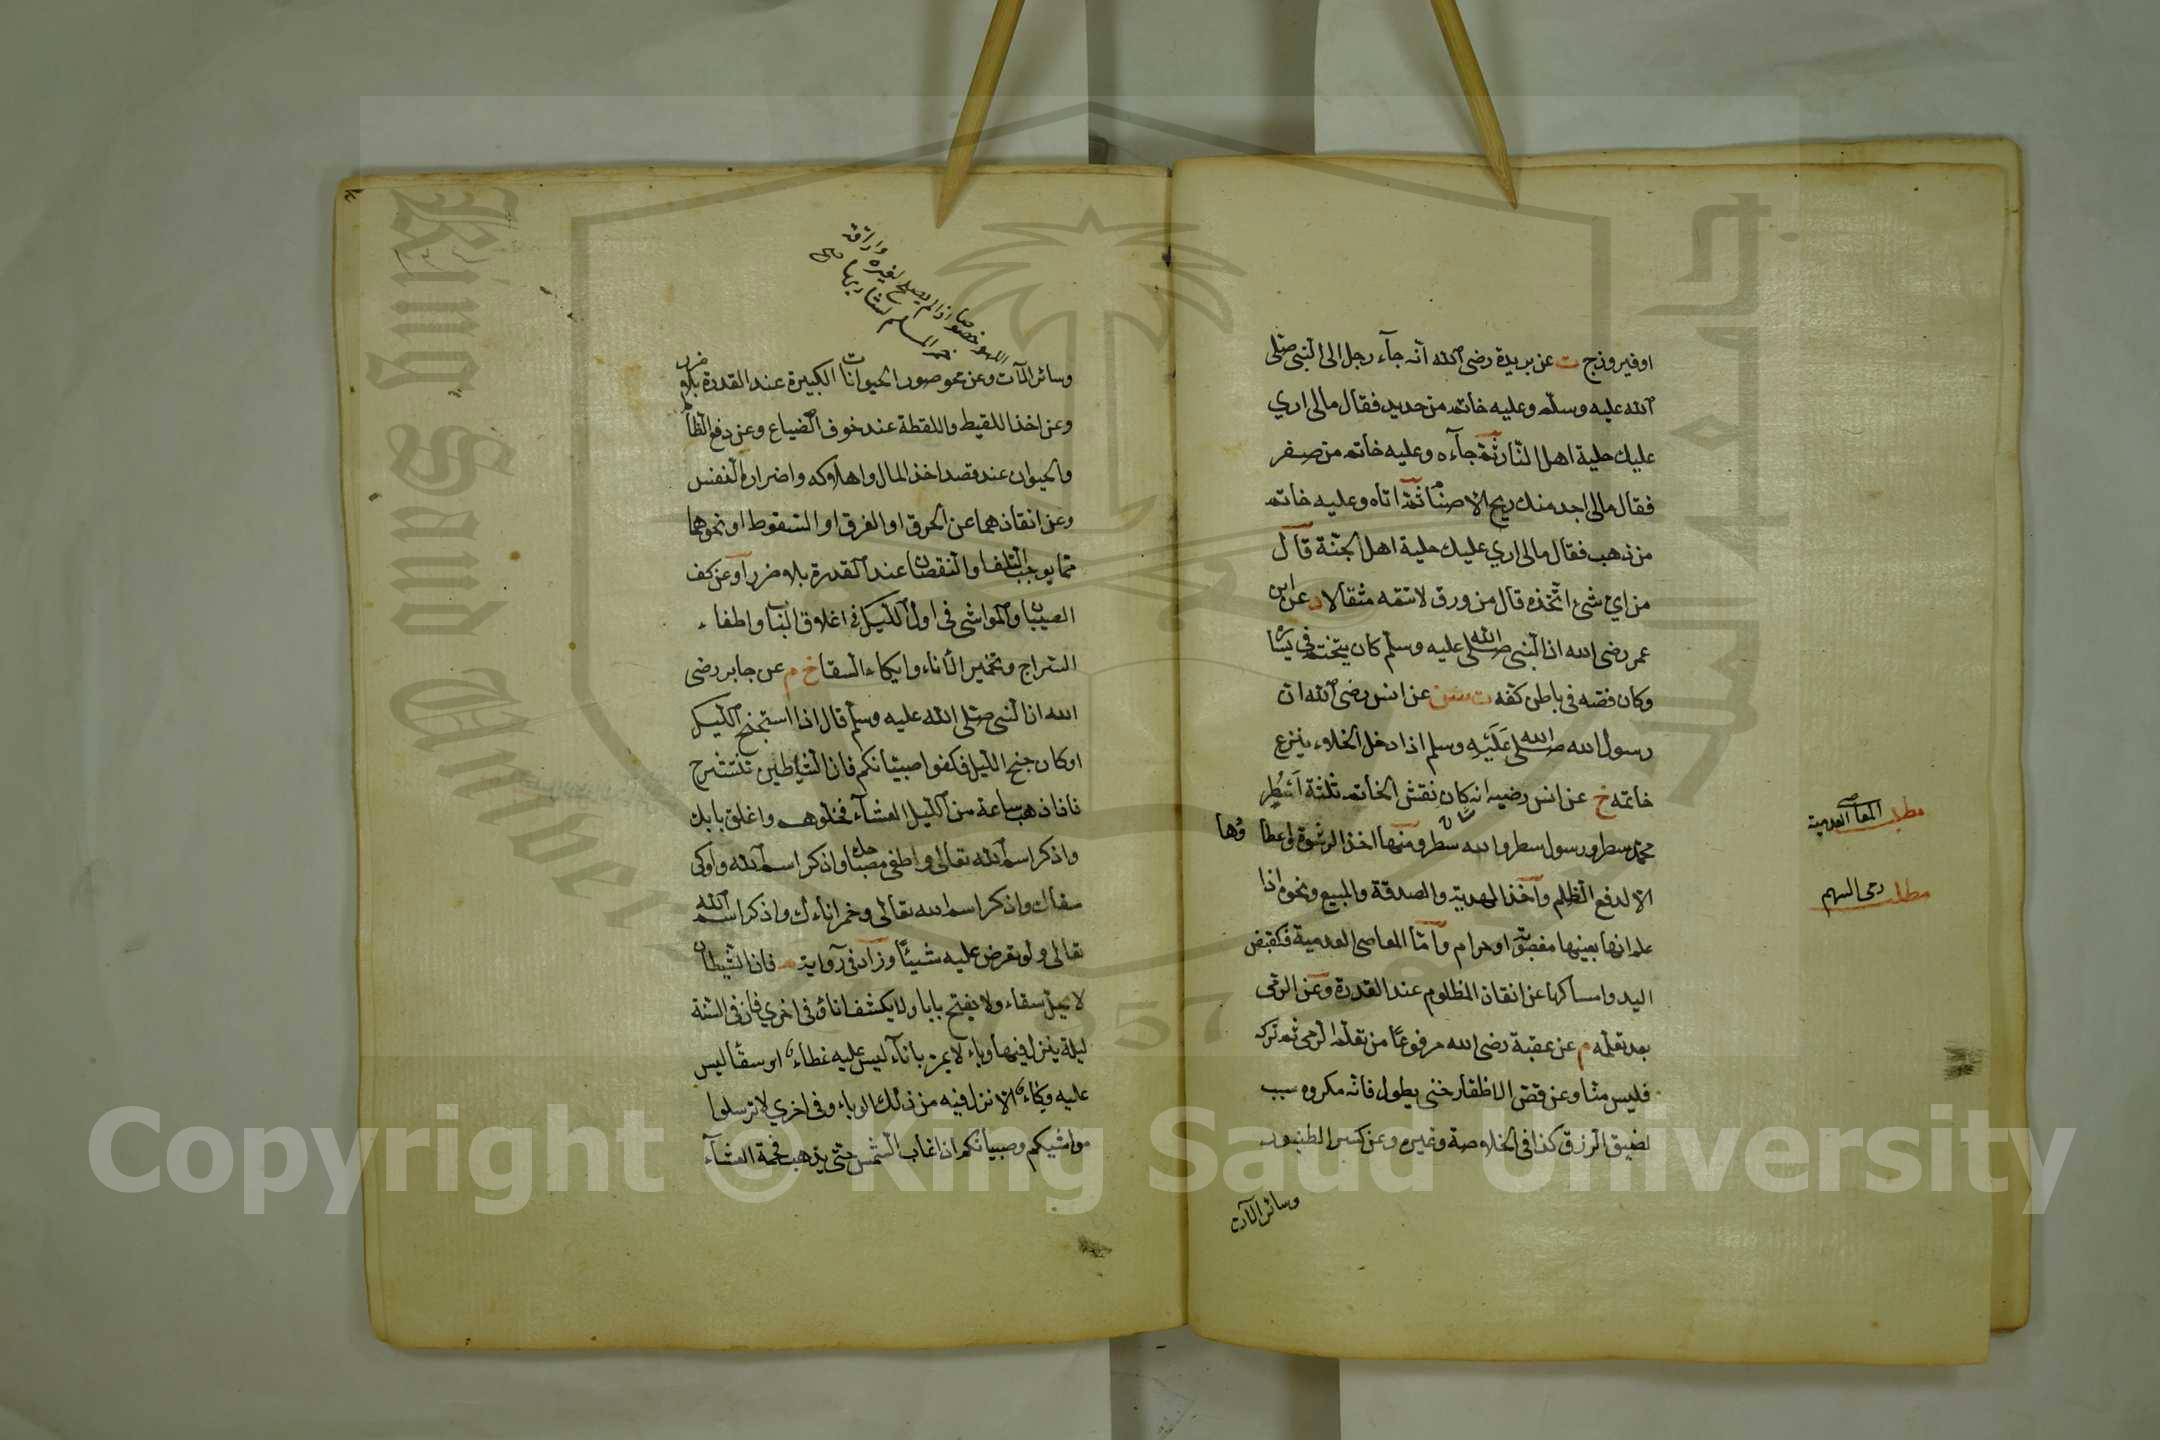 اوفيروزج ت عن بريدة رضي الله انه جآء رجل الى النبي صلى
الله عليه وسلم وعليه خاتم من حديد فقال مالي اري
عليك حلية اهل النار ثمة جآءه وعليه خاتم من صفر
فقال مالي اجد منك ريح الاصنام ثمة اتاه وعليه خاتم
من ذهب فقال مالي اري عليك حلية اهل الجنة قال
من اي شئ اتخذه قال من ورق لا تتمه مثقالا د عن ابن
عمر رضي الله ان النبي صلى الله عليه وسلم كان يتختم في يساره
وكان فصه في باطن كفه ت س عن انس رضي الله ان
رسول الله صلى الله عليه وسلم اذا دخل الخلاء ينزع
خاتمه خ عن انس رضي انه كان نقش الخاتم ثلثة اسطر
محمد سطر ورسول سطر والله سطر ومنها اخذ الرشوة واعطاؤها
الا لدفع الظلم واخذ الهدية والصدقة والمبيع ونحوه اذا
علم انها بعينها مغصوبة او حرام واما المعاصي العدمية فكقبض
اليد وامساكها عن انقاذ المظلوم عند القدرة وعن الرمي
بعد تعلمه م عن عقبة رضي الله مرفوعا من تعلم الرمي ثم تركه
فليس منا وعن قص الاظفار حتى يطول فانه مكروه سبب
لضيق الرزق كذا في الخلاصة وغيره وعن كسر الطنبور
وسائر الآت
مطلب المعاصي العدمية
مطلب رمي السهم
اللهو خصوصا اذا لم يصلح لغيره واراق
خمر المسلم
وسائر الآت وعن محو صور الحيوانات الكبيرة عند القدرة بلا ضرر
وعن اخذ اللقيط واللقطة عند خوف الضياع وعن دفع الظالم
والحيوان عند قصد اخذ المال واهلاكه واضراره النفس
وعن انقاذهما عن الحرق او الغرق او السقوط او نحوهما
مما يوجب التلف او النقصان عند القدرة بلا ضرر او عن كف
الصبيان والمواشي في اول الليل في اغلاق الباب واطفاء
السراج وتخمير الأناء وايكاء السقا خ م عن جابر رضي
الله ان النبي صلى الله عليه وسلم قال اذا استجنح الليل
او كان جنح الليل فكفوا صبيانكم فان الشياطين تنتشر ح
فاذا ذهب ساعة من الليل العشآء فخلوهم واغلق بابك
واذكر اسم الله تعالى واطفي مصباحك واذكر اسم الله واوكى
سقاك واذكر اسم الله تعالى وخمر اناءك واذكر اسم الله
تعالى ولو تعرض عليه شيئا وزاد في رواية م فان الشيطان
لا يحل سقاء ولا يفتح بابا ولا يكشف اناء وفي اخري فان في السنة
ليلة ينزل فيها وباء لا يمر باناء ليس عليه غطاء او سقا ليس
عليه وكاء الا نزل فيه من ذلك الوباء وفي اخري لا ترسلوا
مواشيكم وصبيانكم اذا غاب الشمس حتى يذهب فحمة العشآء
Copyright © King Saud University
1957